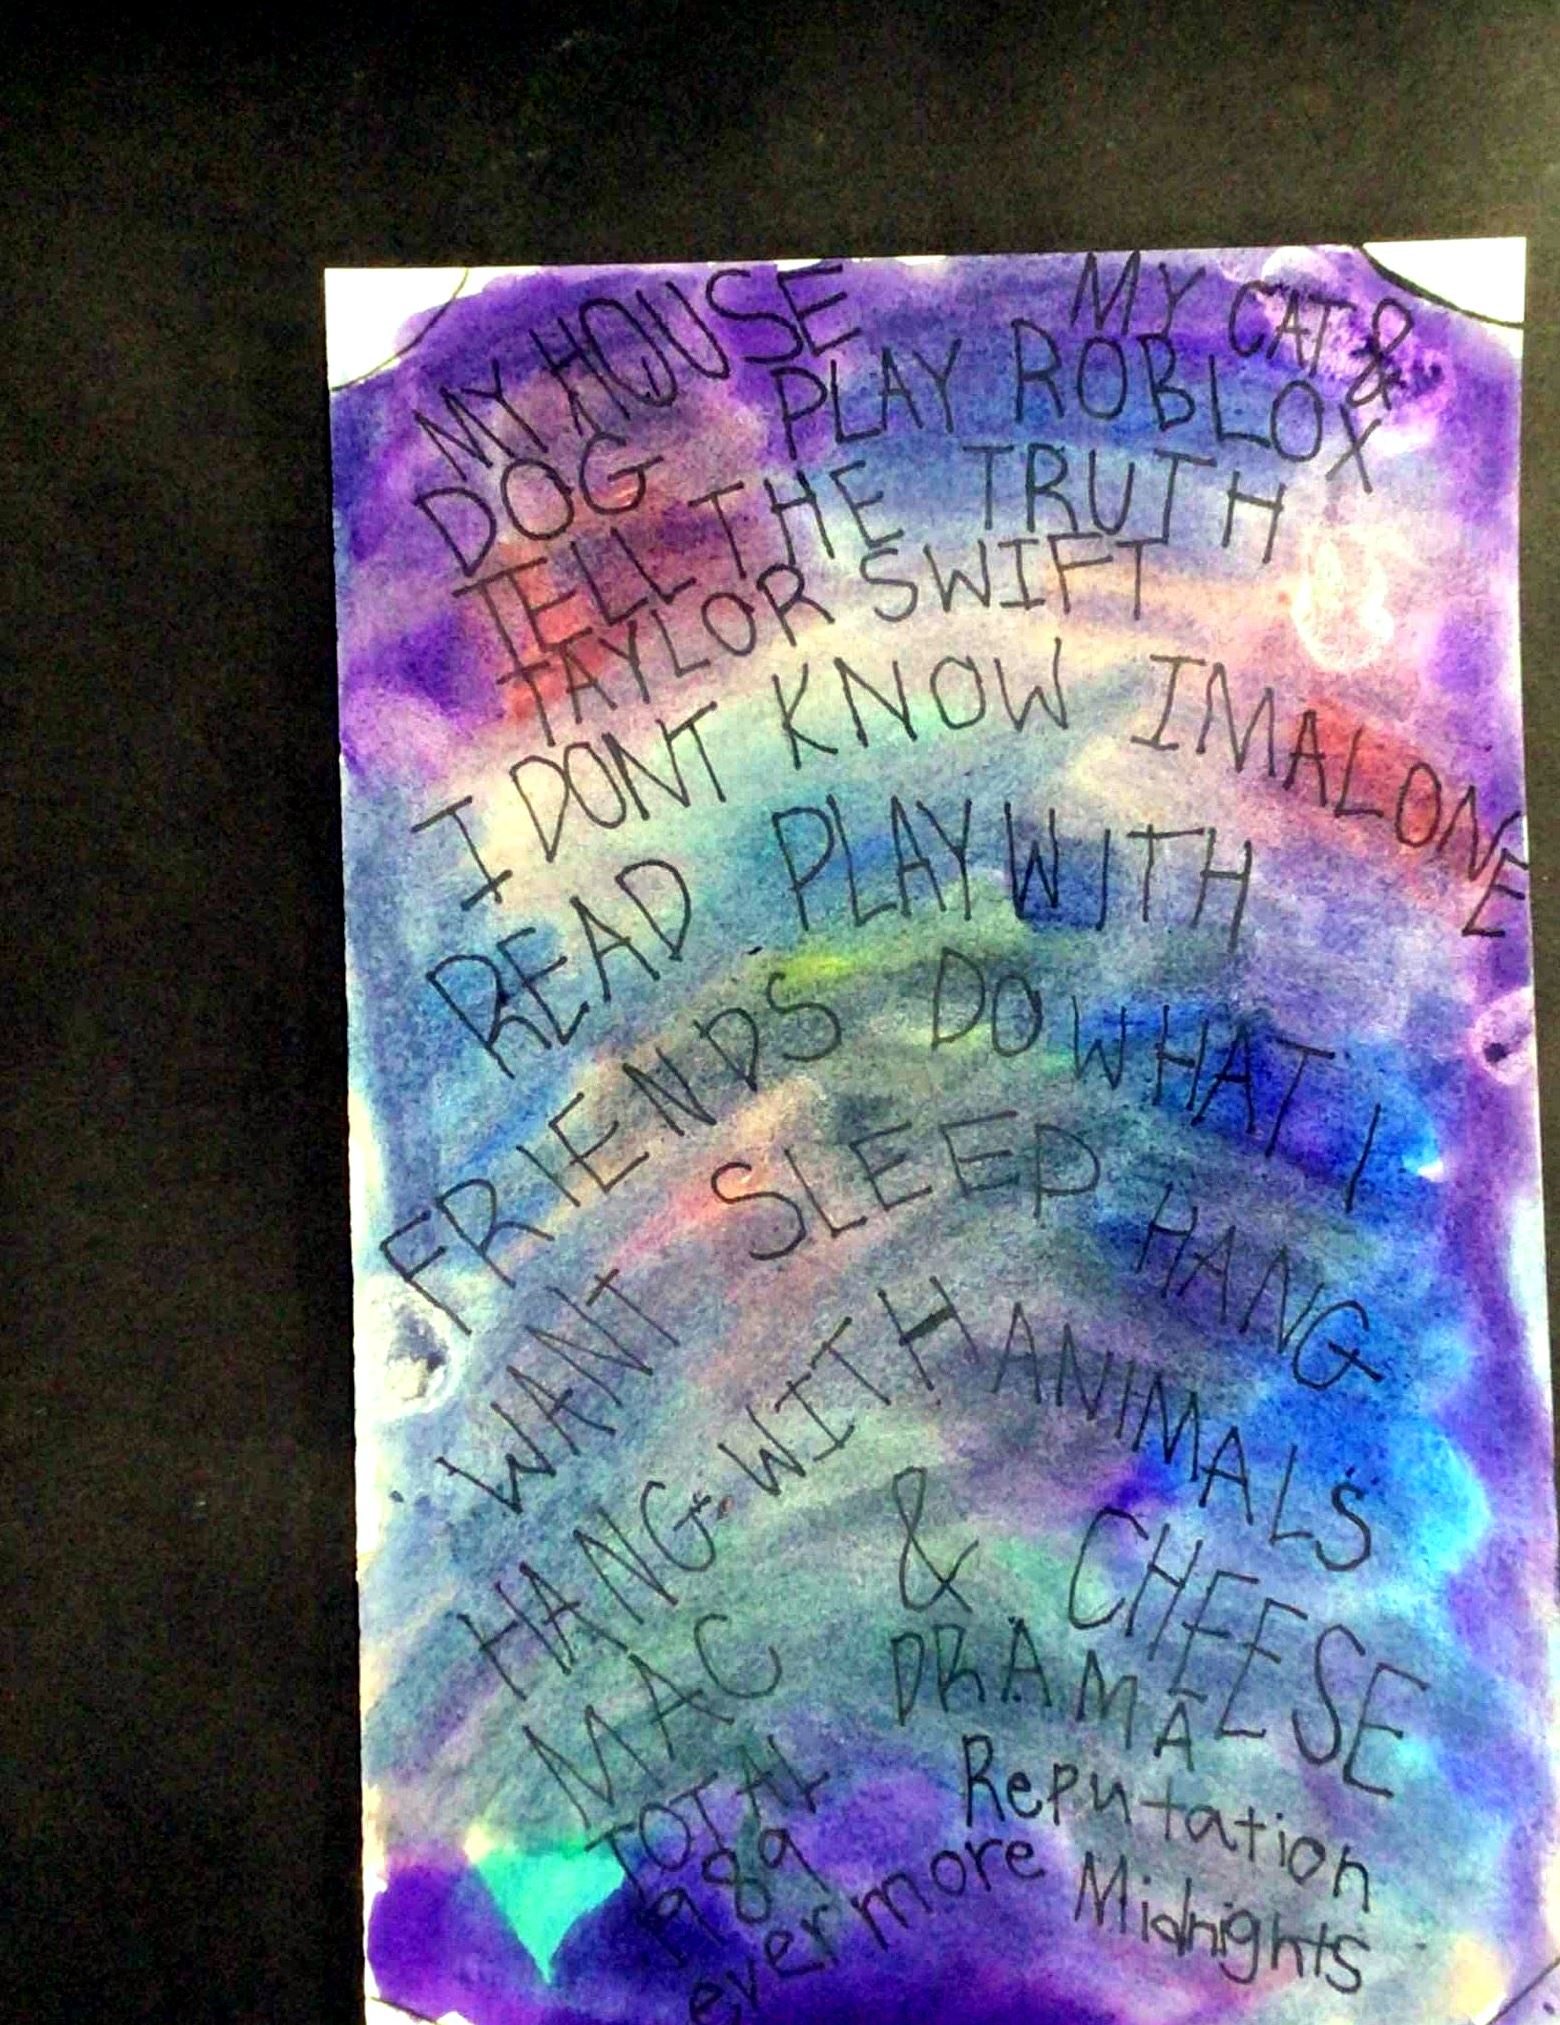 MY HOUSE MY CAT &
DOG PLAY ROBLOX
TELL THE TRUTH
TAYLOR SWIFT
I DONT KNOW IMALONE
READ PLAY WITH
FRIENDS DO WHAT I
WANT SLEEP HANG
HANG WITH ANIMALS
MAC & CHEESE
TOTAL DRAMA
1989 Reputation
evermore Midnights